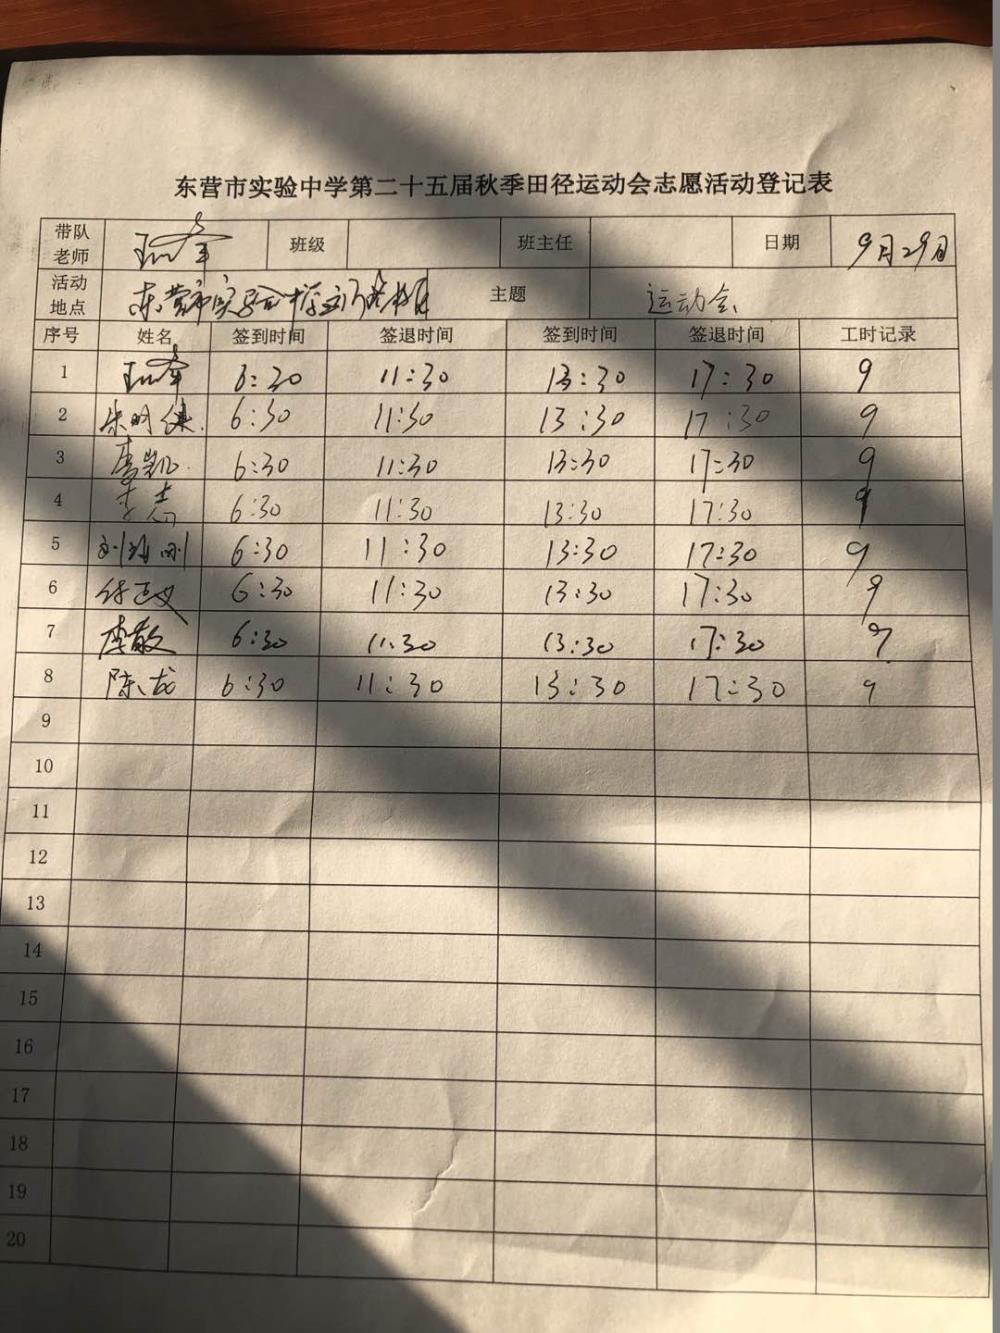 东营市实验中学第二十五届秋季田径运动会志愿活动登记表
带队老师 班级 班主任 日期 9月29日
活动地点 东营市实验中学 主题 运动会
序号 姓名 签到时间 签退时间 签到时间 签退时间 工时记录
1 6:30 11:30 13:30 17:30 9
2 6:30 11:30 13:30 17:30 9
3 6:30 11:30 13:30 17:30 9
4 李志 6:30 11:30 13:30 17:30 9
5 6:30 11:30 13:30 17:30 9
6 6:30 11:30 13:30 17:30 9
7 李敬 6:30 11:30 13:30 17:30 9
8 陈龙 6:30 11:30 13:30 17:30 9
9
10
11
12
13
14
15
16
17
18
19
20